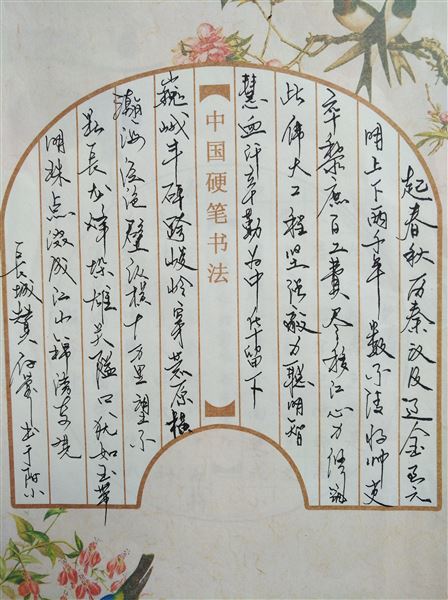 起春秋历秦汉及辽金至元
明上下两千年数不清将帅吏
卒黎庶百工费尽移山心力修筑
此伟大工程坚强毅力聪明智
慧血汗辛勤为中华留下
中国硬笔书法
巍峨丰碑跨峻岭穿荒原横
瀚海经绝壁纵横十万里望不
断长龙烽垛雄关隘口犹如玉带
明珠点缀成江山锦绣
长城赞 书于